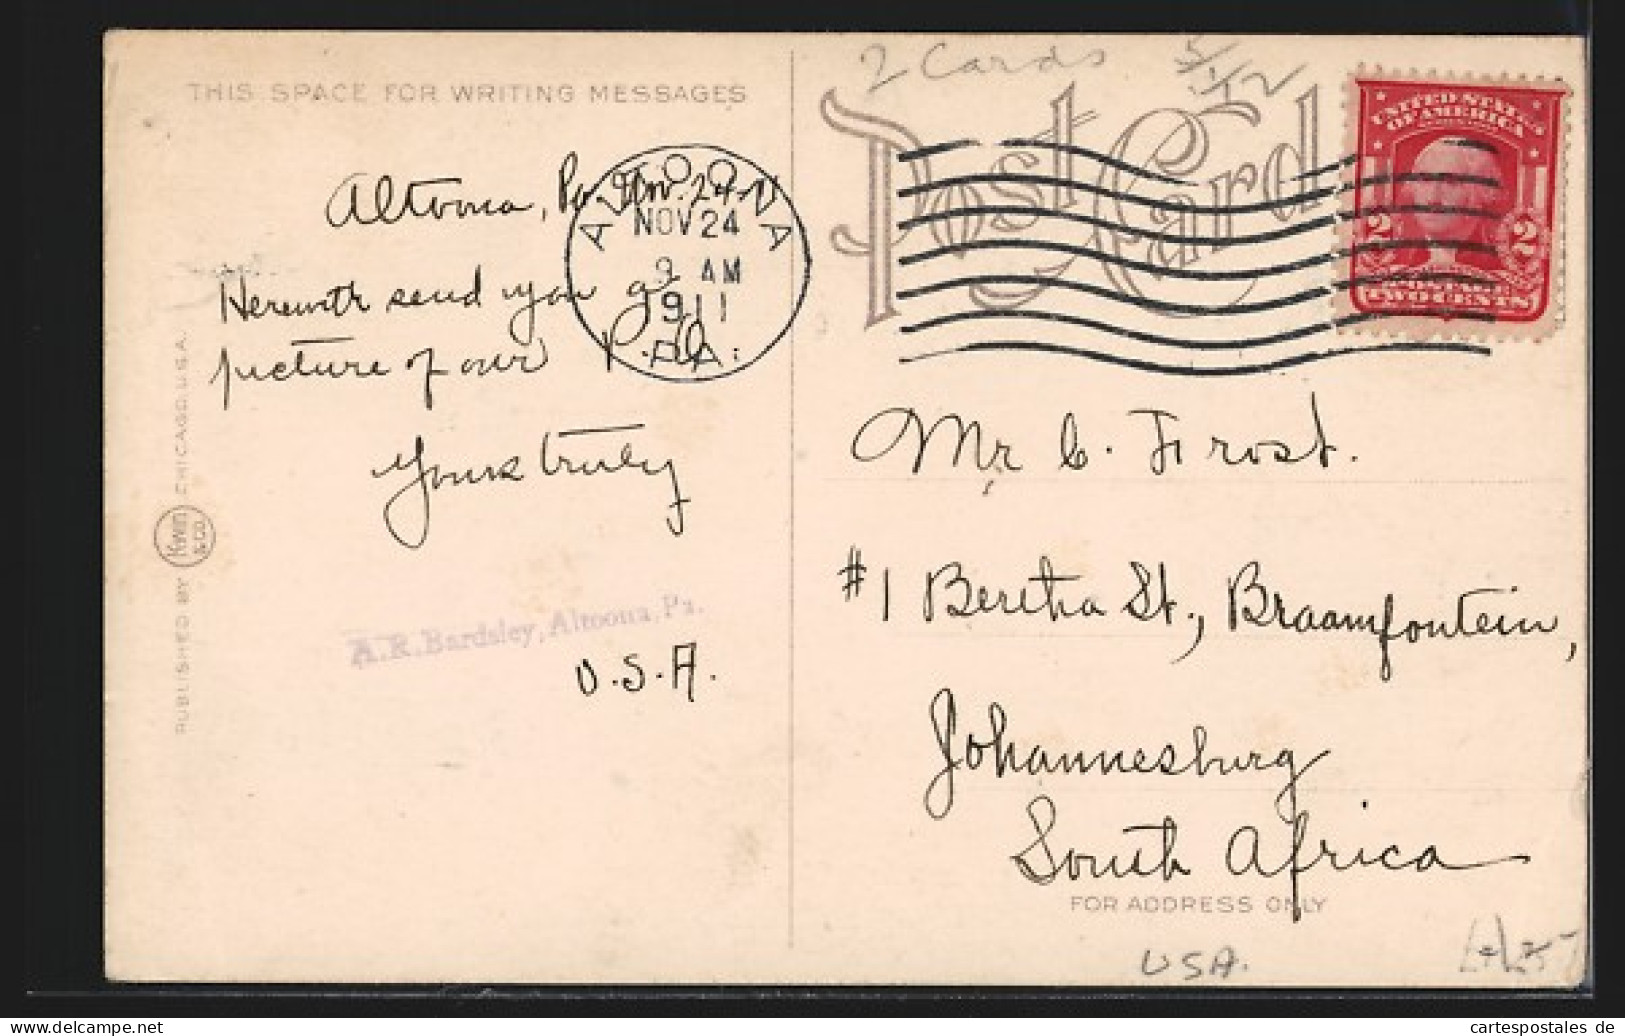 THIS SPACE FOR WRITING MESSAGES
Altoona, Pa. Nov. 24
Herewith send you a
picture of our P.O.
Yours truly
A. R. Bardsley, Altoona, Pa.
U.S.A.
PUBLISHED BY KOEHN & CO. CHICAGO, U.S.A.
ALTOONA
NOV 24
9 AM
1911
PA.
2 Cards
Post Card
UNITED STATES
OF AMERICA
2 2
POSTAGE
TWO CENTS
Mr C. Frost.
#1 Bertha St., Braamfontein,
Johannesburg
South Africa
FOR ADDRESS ONLY
USA.
cartespostales de